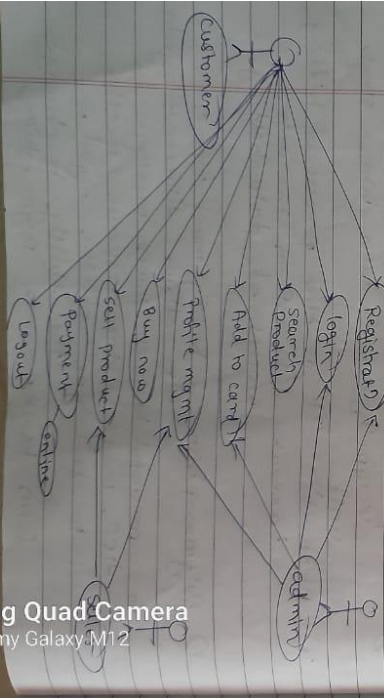 Customer
Registratn
login
search
Product
Add to card
Profile mgmt
Buy now
sell product
Payment
online
Logout
admin
g Quad Camera
my Galaxy M12